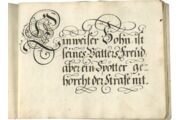 Ein weiser Sohn ist
seines Vatters Freud
aber ein Spötter ge-
horcht der Straffe nit.